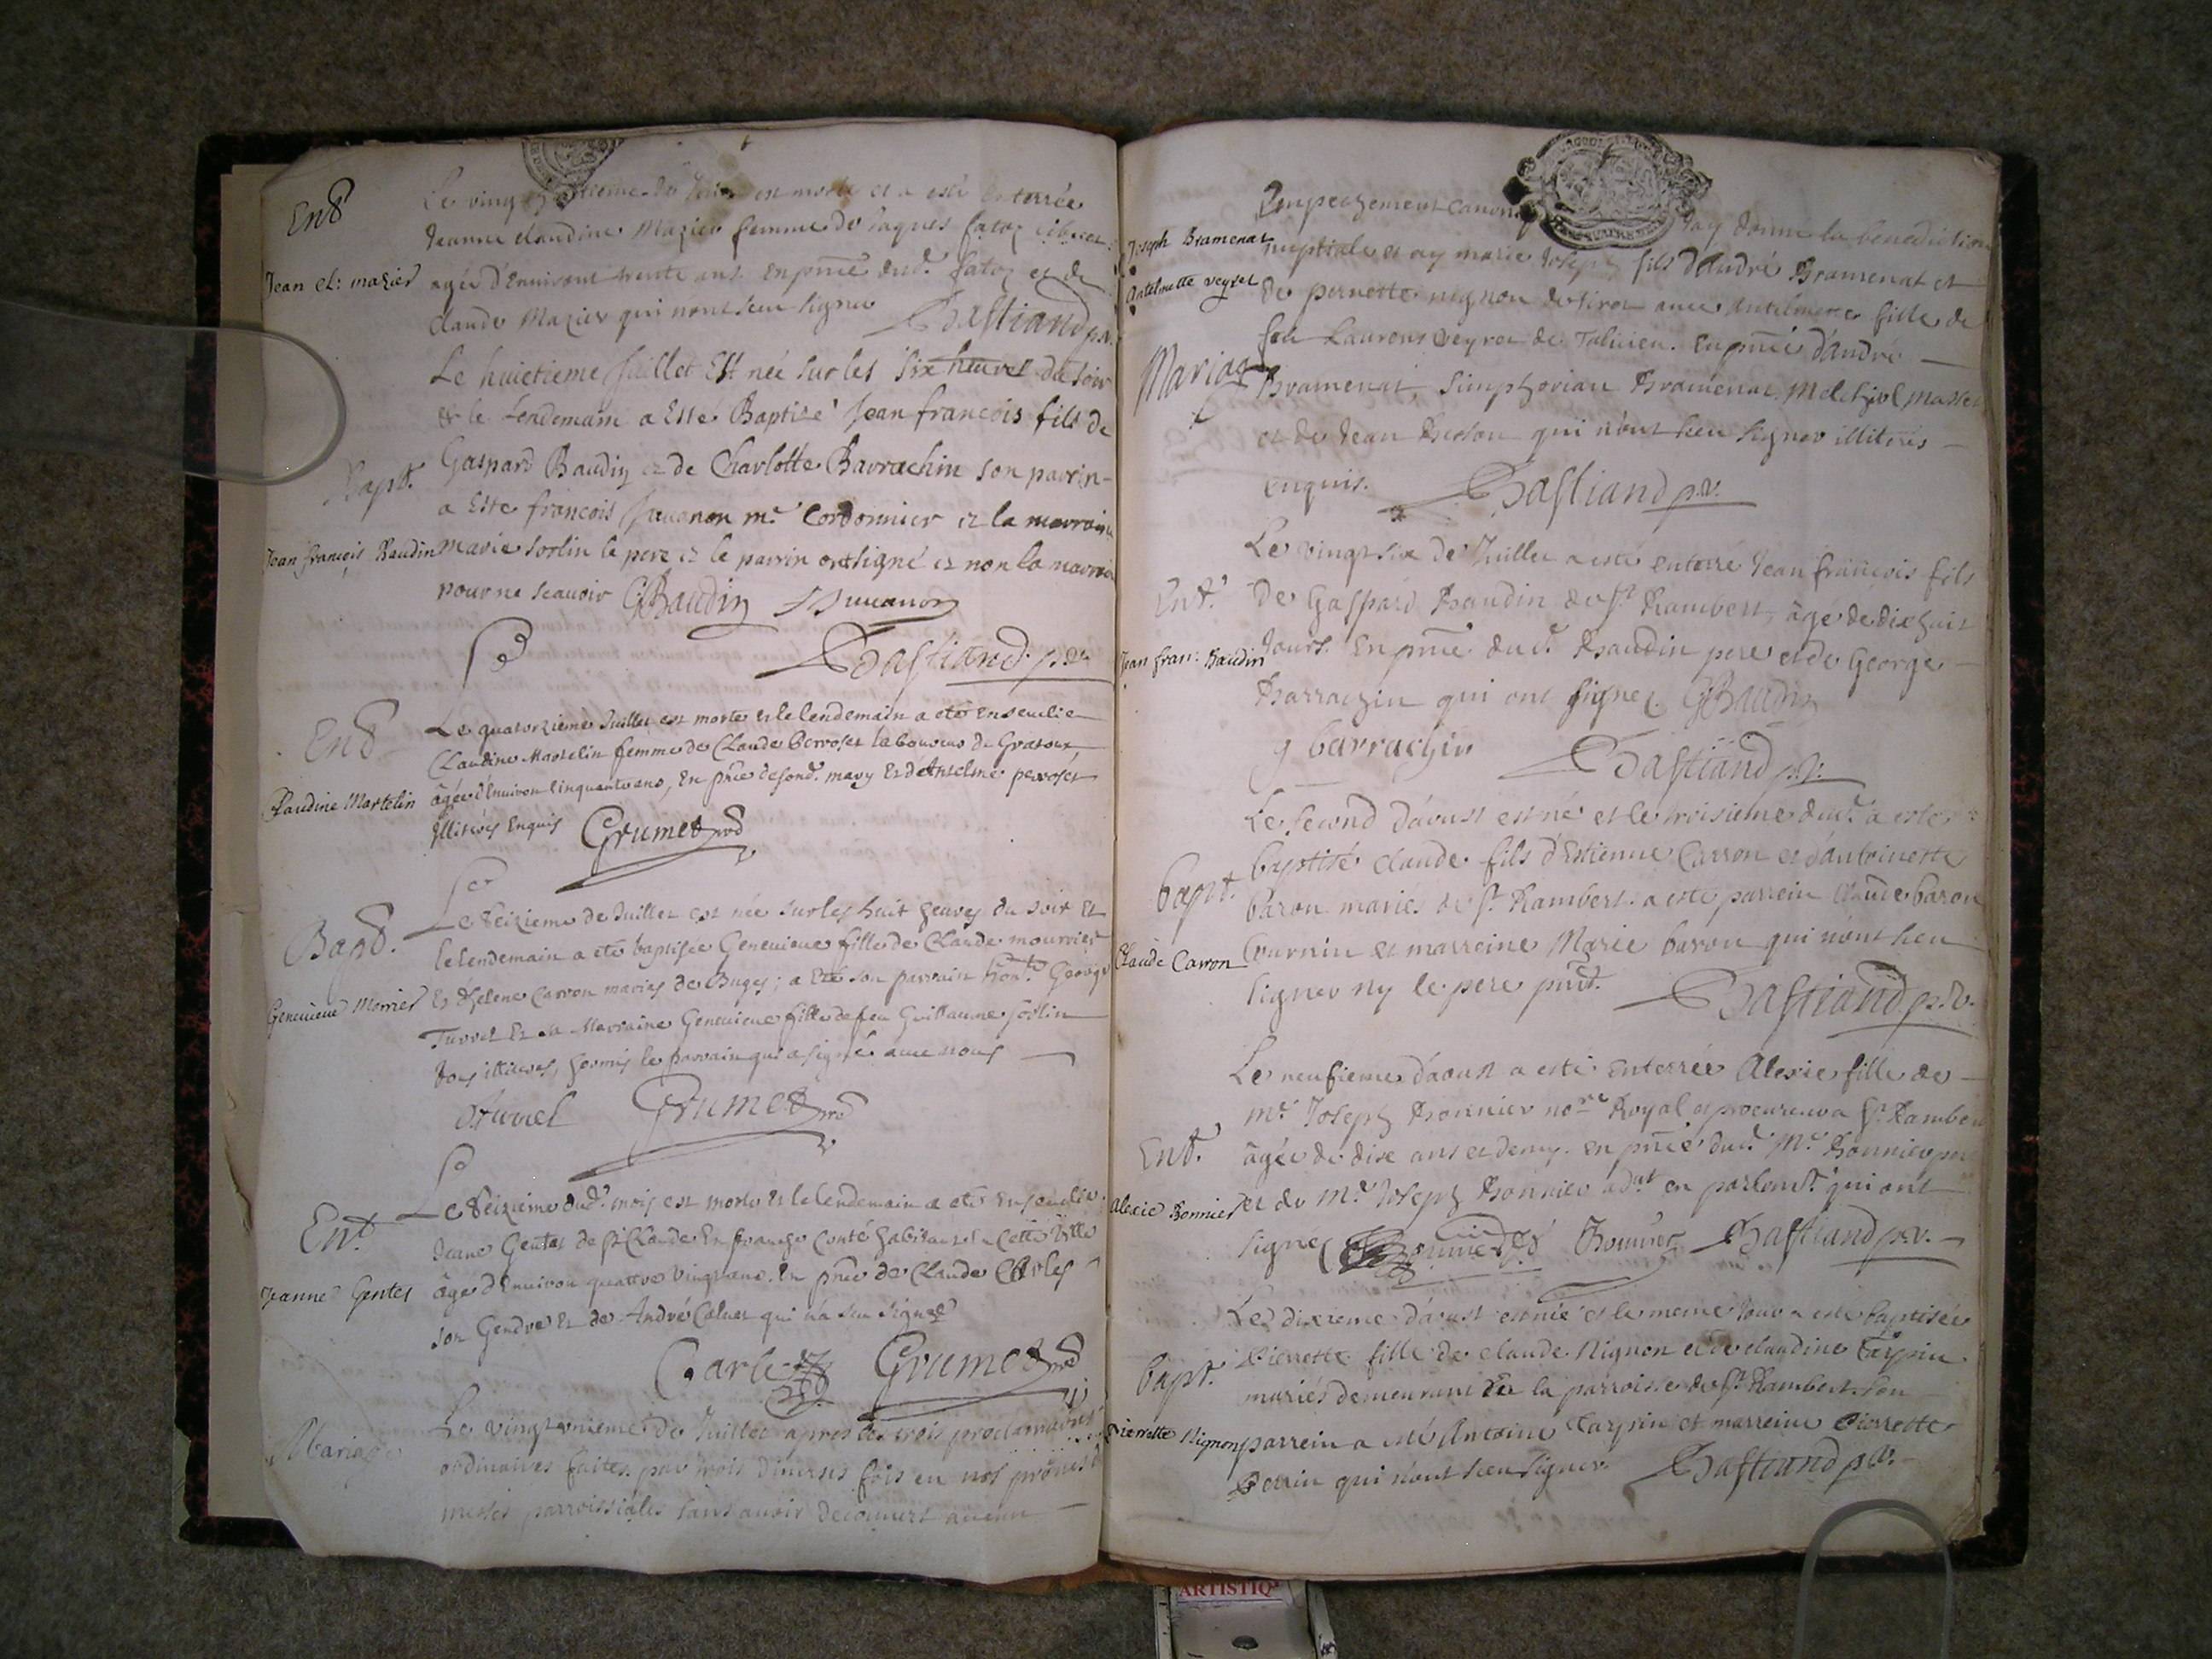 Ent
Le vingt de Juin est morte et a esté enterrée
Jeanne claudine Mazier femme de Jaques fatoz
Jean cl: mazier
agée d'Environt trente ans en pnce dud. fatoz et de
claude Mazier qui n'ont sceu signer Bastiand p.v.
Le huictieme Juillet Est née sur les six heures du soir
& le Lendemain a Esté Baptisé Jean francois fils de
Bapt.
Gaspard Baudin et de Charlotte Barrachin son parrin
a Este francois Juuanon me. Cordonnier et la marraine
Jean françois Baudin
Marie sorlin le pere et le parrin ont signé et non la marraine
pour ne scauoir GBaudin Juuanon
Bastiand p.v.
Ent
Le quatorzieme Juillet est morte et le lendemain a eté ensevelie
Claudine Martelin femme de Claude Perroset laboureur de Gratoux,
Claudine Martelin
âgée d'Enuiron Cinquante ans, En pnce de sond. mary Et d'Anselme perroset
Illiterés Enquis Grumet
Bapt.
Le seizieme de Juillet est née sur les huit heures du soir Et
le lendemain a eté baptisée Geneuieue fille de Claude mourrier
Genevieve Morrier
Et d'helene Carron mariés de Buges; a Eté son parrain hont. George
Turrel Et sa Marraine Geneuieue fille de feu Guillaume sorlin
tous illiterés, hormis le parrain qui a signé auec nous
Turrel Grumet
Ent.
Le seizieme dud. mois est morte et le lendemain a eté ensevelie
Jeanne Gentet de St Claude En franche Conté habitante en Cette Ville
Jeanne Gentet
âgée d'Enuiron quattre vingt ans. En pnce de Claude Carles
son Gendre Et de André Caluet qui n'a sceu signer
Carles Grumet
Mariage
Le vingt unieme de Juillet apres les trois proclamations
ordinaires faites par trois diuerses fois en nos prônes de
messes parroissiales sans auoir decouuert aucun
Empechement canoniq Jay donné la benediction
Joseph Bramenat
nuptiale et ay marié Joseph fils d'André Bramenat et
Antelmette veyret
de pernette nignon de siret auec Antelmette fille de
feu Laurens veyret de Talicieu. En pnce d'andré
Mariage
Bramenat, simphorian Bramenat, Melchiol Masset
et de Jean qui n'ont sceu signer illiterés
enquis. Bastiand p.v.
Le vingt six de Juillet a esté enterré Jean françois fils
Ent.
de Gaspard Baudin de St. Rambert, âgé de dix huit
jours. En pnce dud. Baudin pere et de George
Jean fran: Baudin
Barrachin qui ont signez. GBaudin
g barrachin Bastiand p.v.
Le second d'aoust est né et le troisieme dud. a esté
bapt.
baptisé claude fils d'Estienne Carron et d'antoinette
baron mariés de St. Rambert. a esté parrein Claude baron
Claude Carron
Cournin et marreine Marie baron qui n'ont sceu
signer ny le pere pnt. Bastiand p.v.
Le neufieme d'aoust a esté enterrée Alexie fille de
me. Joseph Bonnier nore Royal et procureur a St. Rambert
Ent.
âgée de dixe ans et demy. en pnce dud. Me. Bonnier pere
Alexie Bonnier
et de Me. Joseph Bonnier adat en parlemt. qui ont
signez Bonnier Bonnier Bastiand p.v.
Le dixieme d'aoust est née et le meme jour a esté baptisée
bapt.
Pierrette fille de claude Nignon et de claudine Tarpin
mariés demeurant la parroisse de St. Rambert. son
Pierrette Nignon
parrein a esté Antoine Tarpin et marreine Pierrette
Perrin qui n'ont sceu signer. Bastiand p.v.
ARTISTIQ